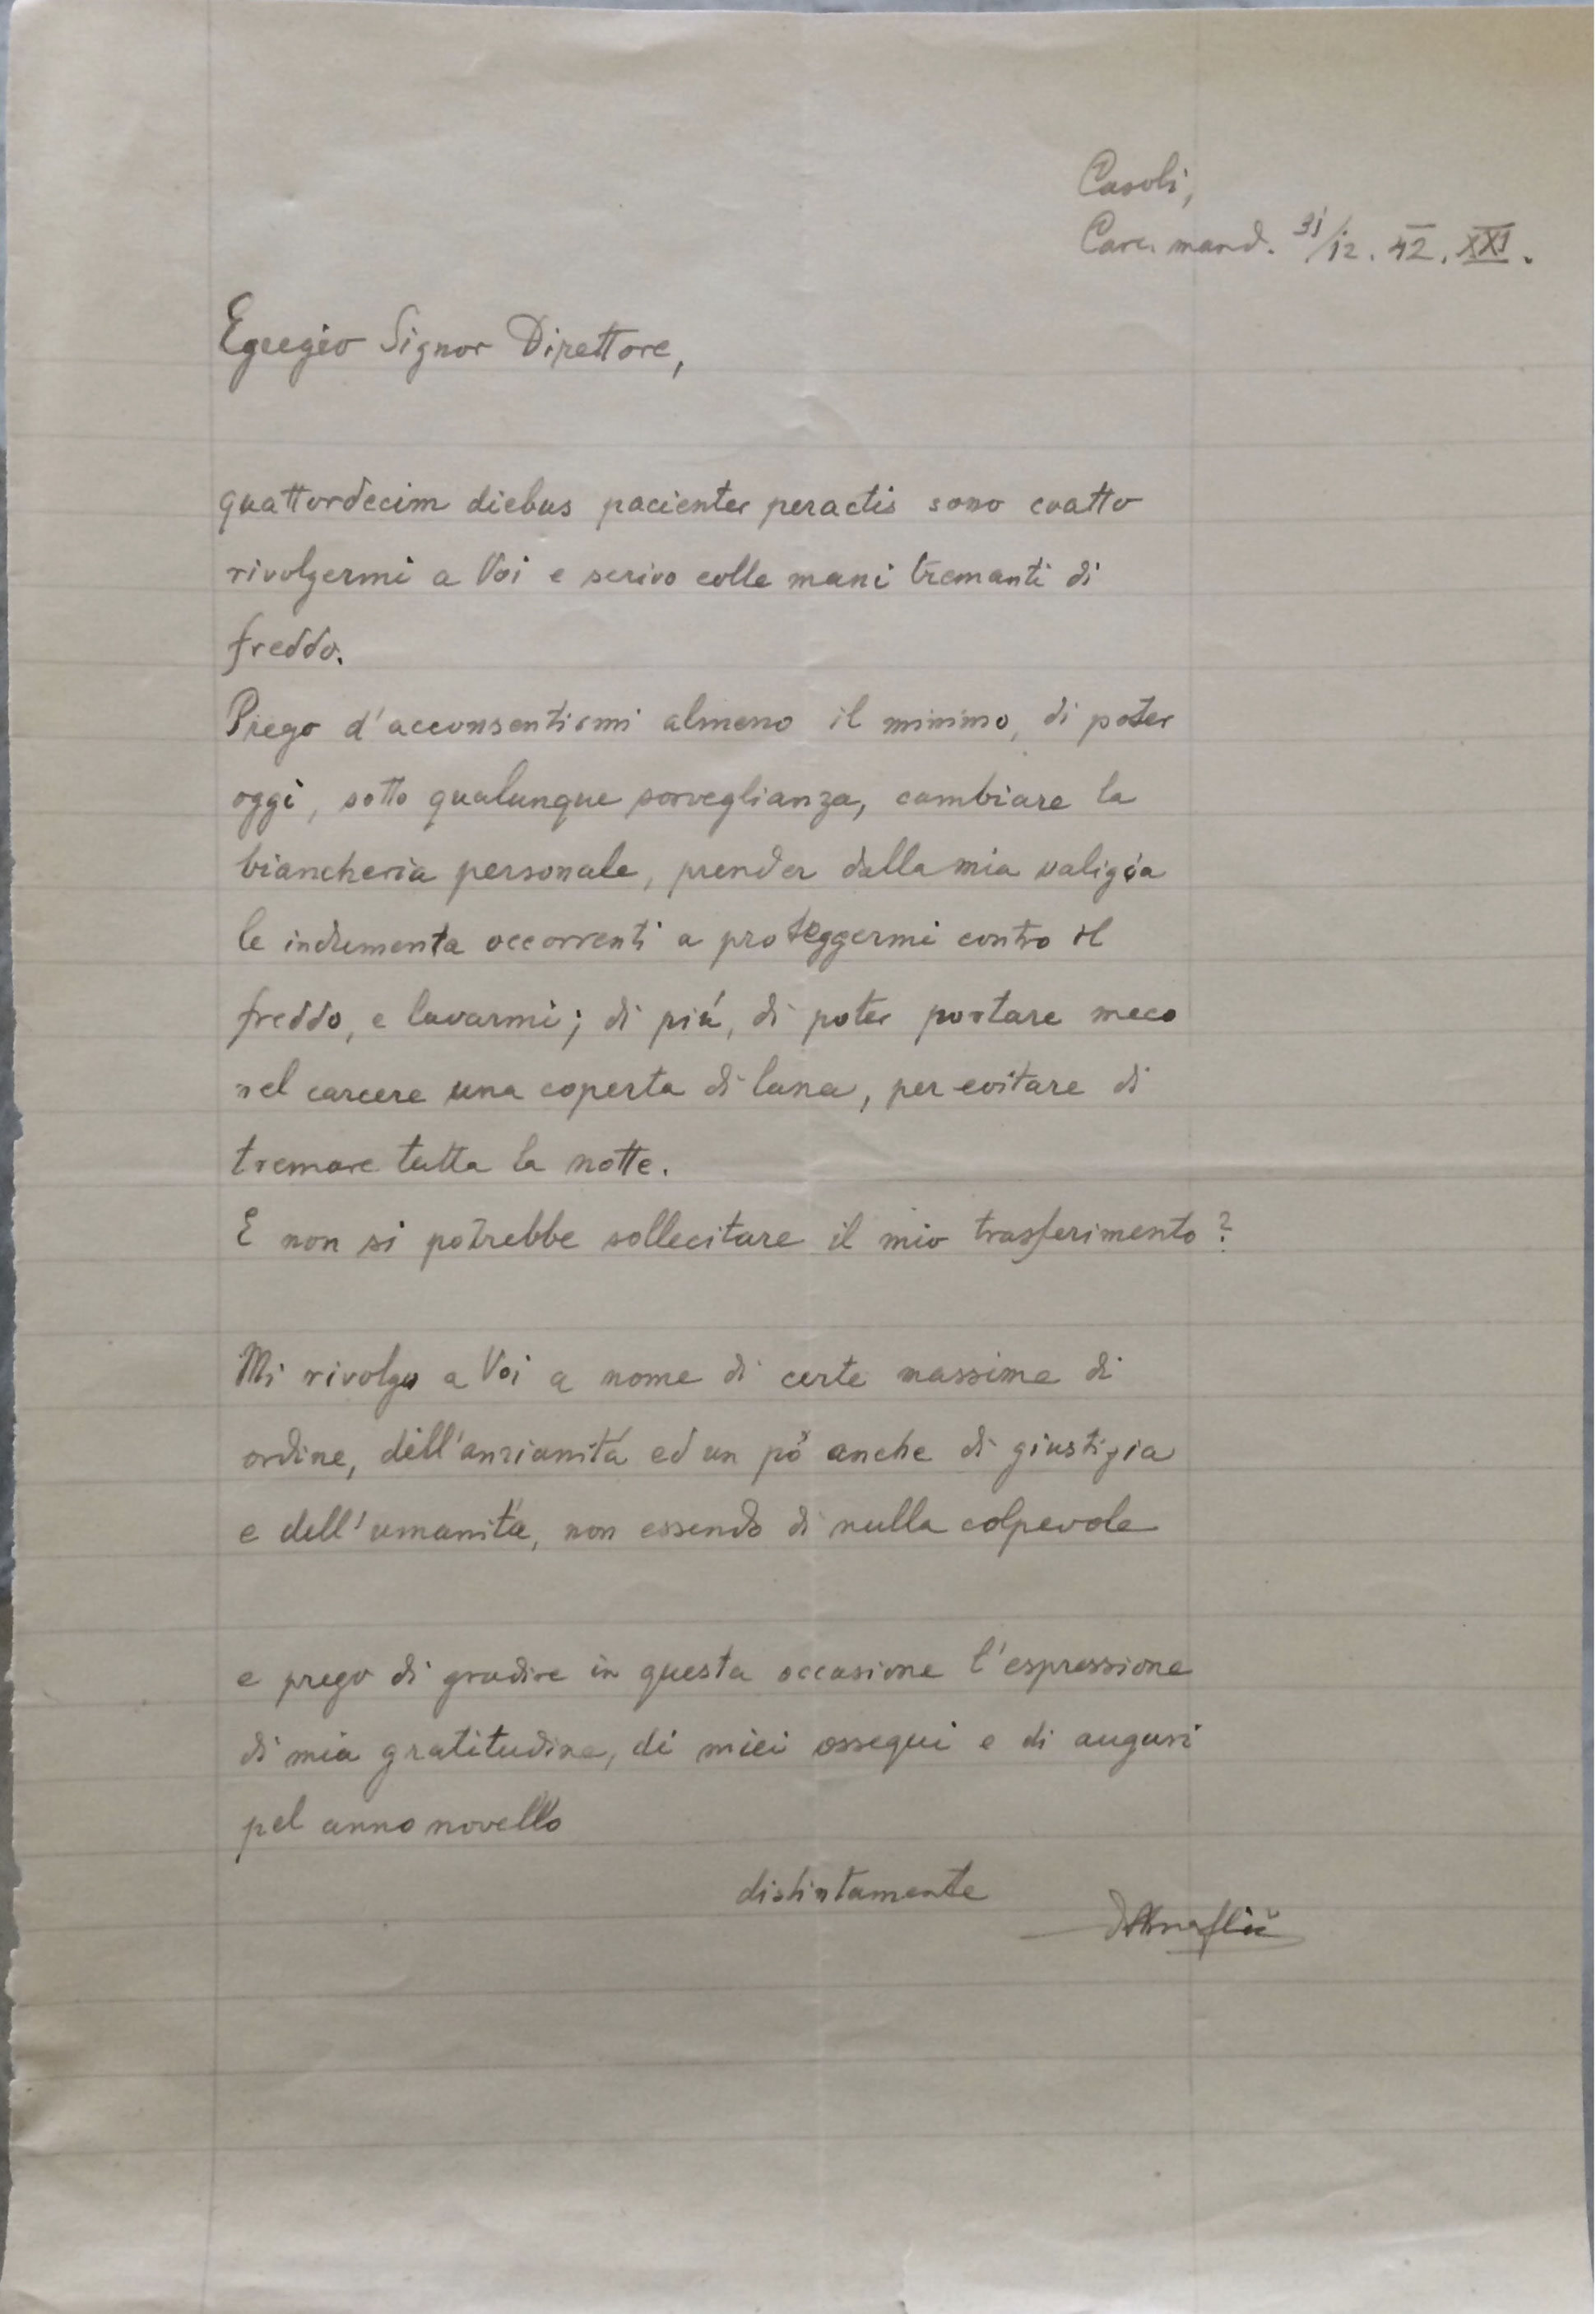 Casoli,
Carc. mand. 31/12. 42. XXI.
Egregio Signor Direttore,
quattordecim diebus pacienter peractis sono coatto
rivolgermi a Voi e scrivo colle mani tremanti di
freddo.
Prego d'acconsentirmi almeno il minimo, di poter
oggi, sotto qualunque sorveglianza, cambiare la
biancheria personale, prender dalla mia valigia
le indumenta occorrenti a proteggermi contro il
freddo, e lavarmi; di piú, di poter portare meco
nel carcere una coperta di lana, per evitare di
tremare tutta la notte.
E non si potrebbe sollecitare il mio trasferimento?
Mi rivolgo a Voi a nome di certe massime di
ordine, dell'anzianitá ed un pó anche di giustizia
e dell'umanitá, non essendo di nulla colpevole
e prego di gradire in questa occasione l'espressione
di mia gratitudine, di miei ossequi e di auguri
pel anno novello
distintamente